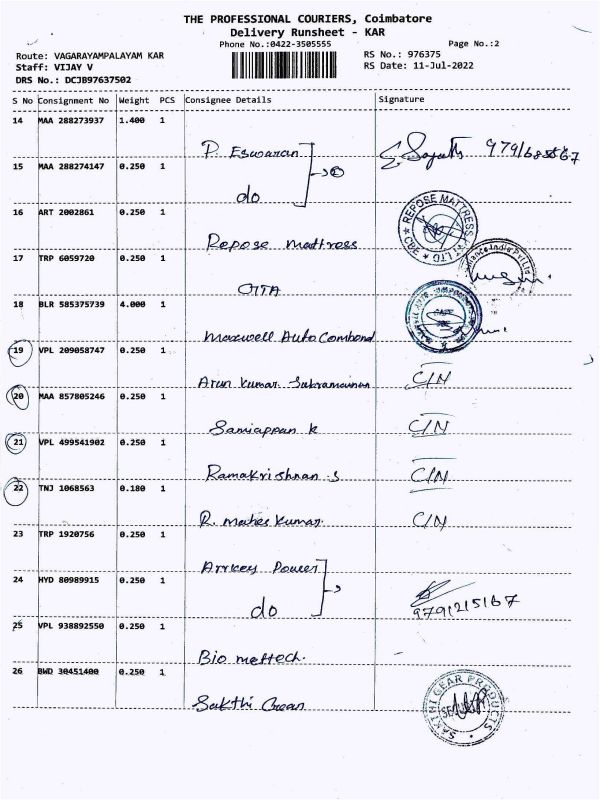 THE PROFESSIONAL COURIERS, Coimbatore
Delivery Runsheet - KAR
Phone No.:0422-3505555
Page No.:2
Route: VAGARAYAMPALAYAM KAR
RS No.: 976375
Staff: VIJAY V
RS Date: 11-Jul-2022
DRS No.: DCJB97637502
S No Consignment No Weight PCS Consignee Details Signature
14 MAA 288273937 1.400 1
P. Eswaran
15 MAA 288274147 0.250 1
do
16 ART 2002861 0.250 1
Repose mattress
REPOSE MATTRESS PVT LTD * CBE *
17 TRP 6059720 0.250 1
18 BLR 585375739 4.000 1
Maxwell Auto
19 VPL 209058747 0.250 1
Arun Kumar C/N
20 MAA 857805246 0.250 1
Samiappan K C/N
21 VPL 499541902 0.250 1
Ramakrishnan S C/N
22 TNJ 1068563 0.180 1
R. Mahes Kumar. C/N
23 TRP 1920756 0.250 1
Power
24 HYD 80989915 0.250 1
do
9791215167
25 VPL 938892550 0.250 1
Bio mettech.
26 BWD 30451400 0.250 1
Sakthi Gear
SAKTHI GEAR PRODUCTS